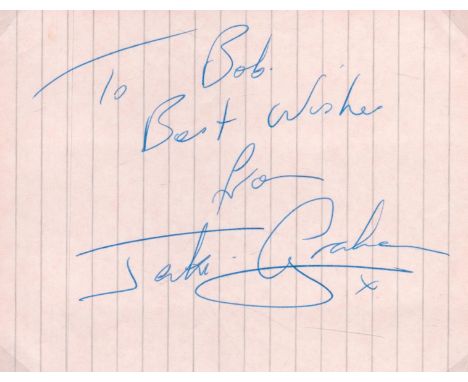 To Bob.
Best Wishes
from
Jaki Graham
x